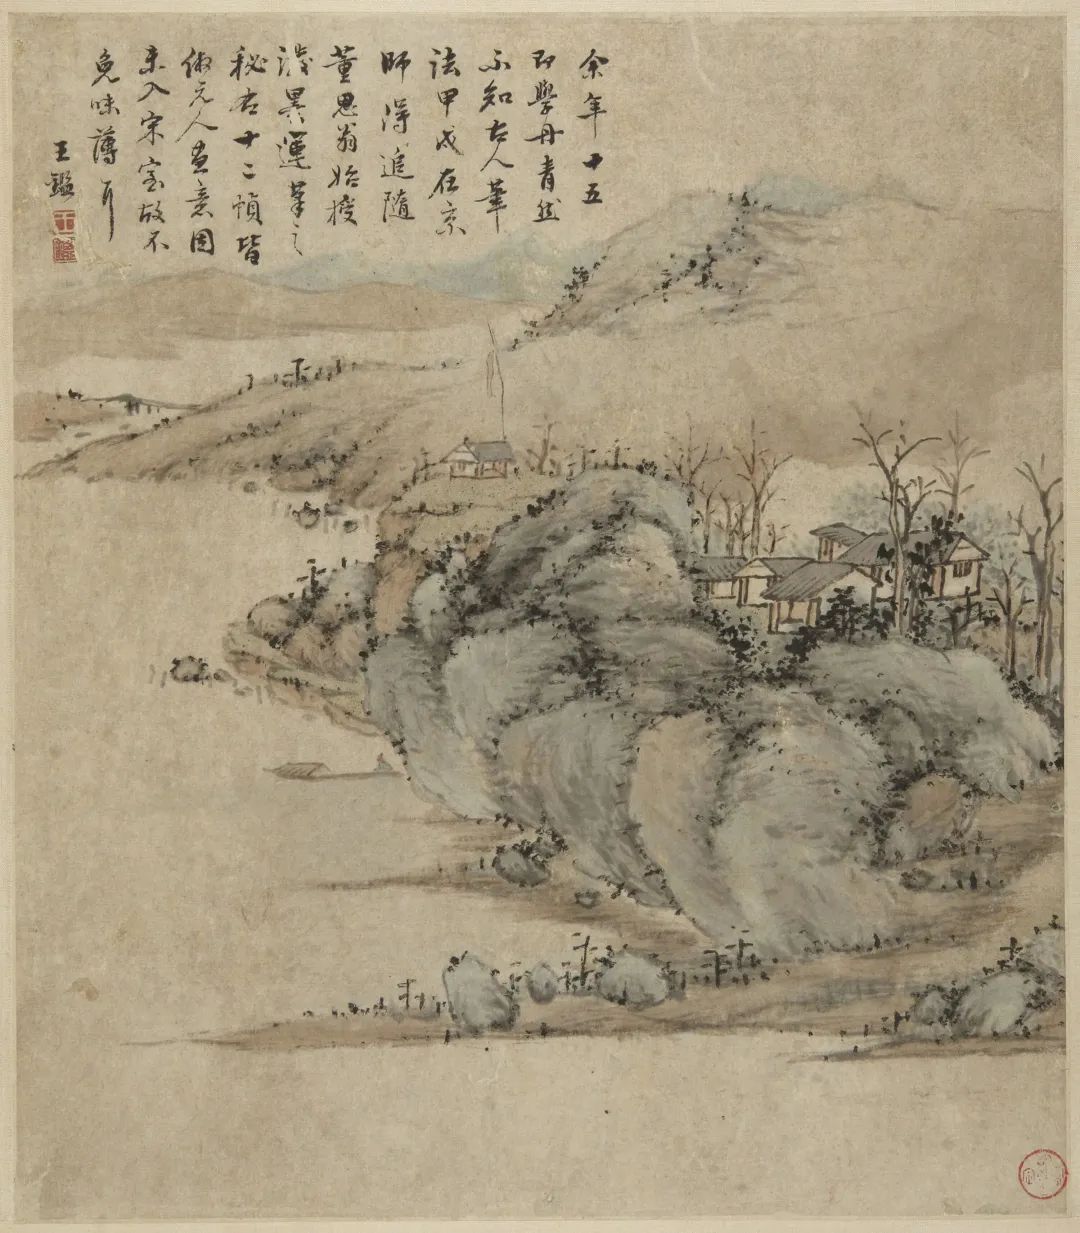 余年十五
即學丹青然
不知古人筆
法甲戌在京
師得追隨
董思翁始授
運筆之
秘右十二幀皆
倣元人畫意因
未入宋室故不
免味薄耳
王鑑
王
鑑